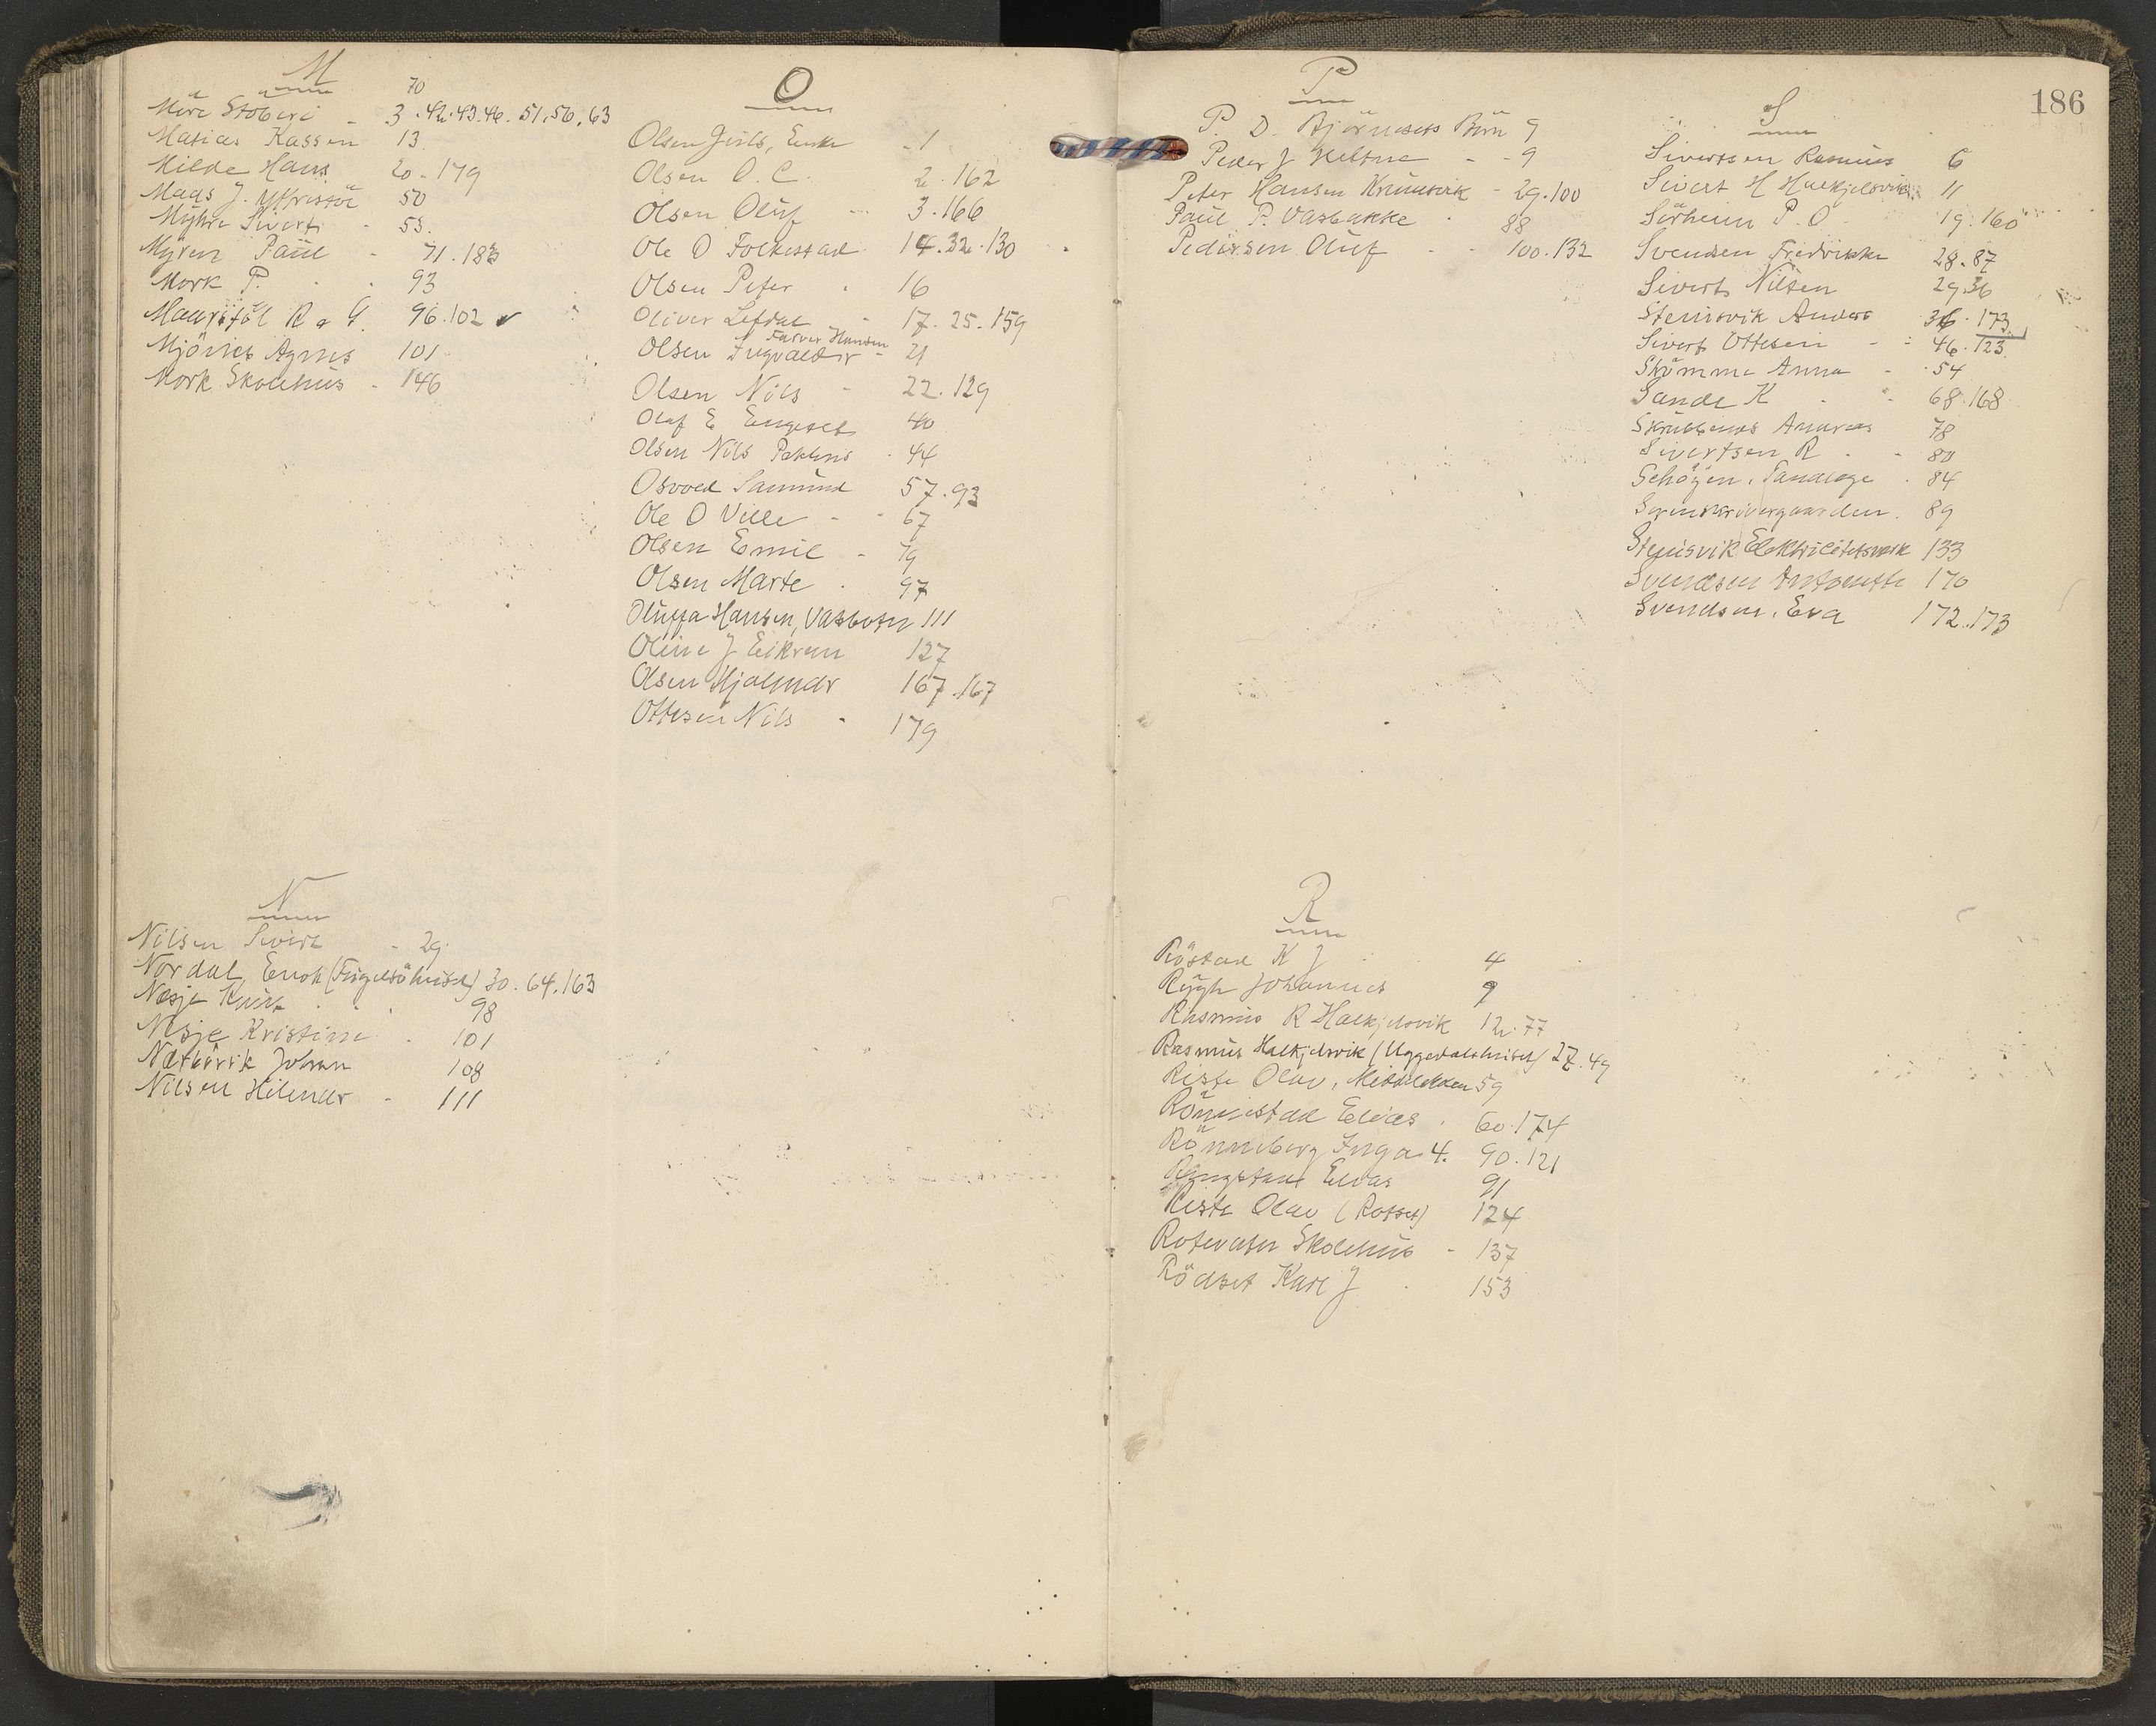 M
70
Möre Stöberi - 3.42.43.46.51.56.63
Matias Kassen 13
Milde Hans 20-179
Mads J. 50
Myhre Sivert - 53.
Myren Paul - 71.183
Mork P. 93
R & G. 96.102
Mjönes Agnes 101
Mork Skolehus - 146
N
Nilsen Sivert - 29
Nordal, Enok 30.64.163
Nesje Knut 98
Nesje Kristine 101
Johan 108
Nilsen Hilmar - 111
O
Olsen Enke - 1
Olsen O. C. 2.162
Olsen Oluf - 3.166
Ole O Folkestad 14.32.130
Olsen Peter 16
Oliver Lefdal 17.25.159
Farver Hansen
Olsen Ingvald - 21
Olsen Nils - 22.129
Olaf E Engeset 40
Olsen Nils 44
Osvold Samund 57.93
Ole O Velle - - 67
Olsen Emil - 79
Olsen Marte . 97
Oluffa Hansen, Vasbotn 111
Oline J Eikrem 127
Olsen Hjalmar 167.167
Ottesen Nils - 179
P
P. D. Björnesets Börn 9
Peder J Heltne - - 9
Peter Hansen Krumsvik - 29.100
Paul P. Vasbakke 88
Pedersen Oluf - - 100.132
R
Röstad K J 4
Rygh Johannes 9
Rasmus R Halkjelsvik 12.77
Rasmus Halkjelsvik (Uggedalshuset) 27.49
Riste Olav, 59
Elias . 60.174
Rönneberg Inga 4. 90.121
Elias 91
Riste Olav (Rosset) 124
Rotevatn Skolehus - 137
Rödset Karl J 153
186
S
Sivertsen Rasmus 6
Sivert H Halkjelsvik 11
Sörheim P. O 19.160
Svendsen Fredrikke 28.87
Sivert Nilsen 29.36
Steinsvik Anders 36.173
Sivert Ottesen - - 46.123
Anna - 54
Sande K 68.168
Andreas 78
Sivertsen R - - 80
Schöyen, 84
Sorenskrivergaarden. 89
Steinsvik Elektricitetsverk 133
Svendsen Antonette 170
Svendsen, Eva 172.173